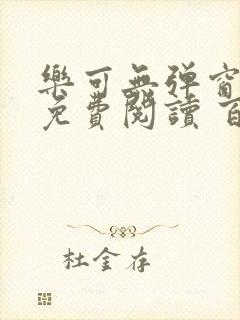 樂可無彈窗
免費閱讀 百
杜金存